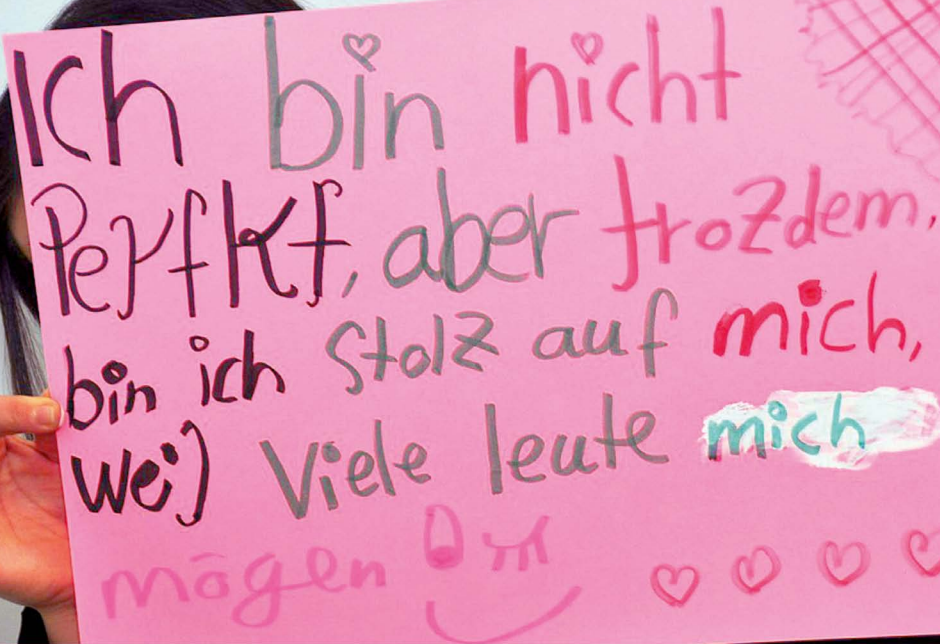 Ich bin nicht
Perfkt, aber trozdem,
bin ich Stolz auf mich,
weil Viele leute mich
mögen